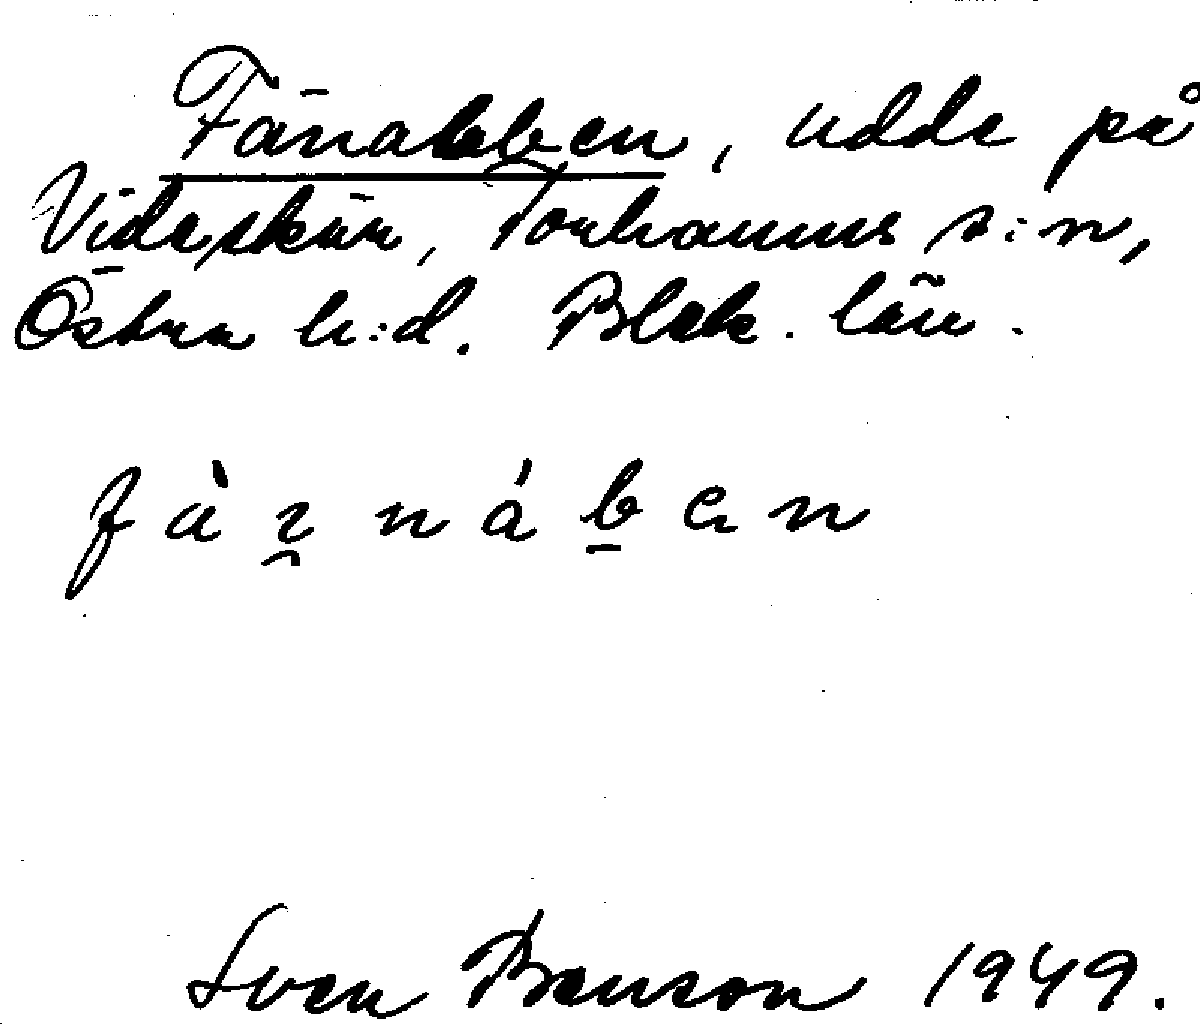 Fänabben, udde på
Videskär, Torhamns s:n,
Östra h:d. Blek. län.
Sven Benson 1949.